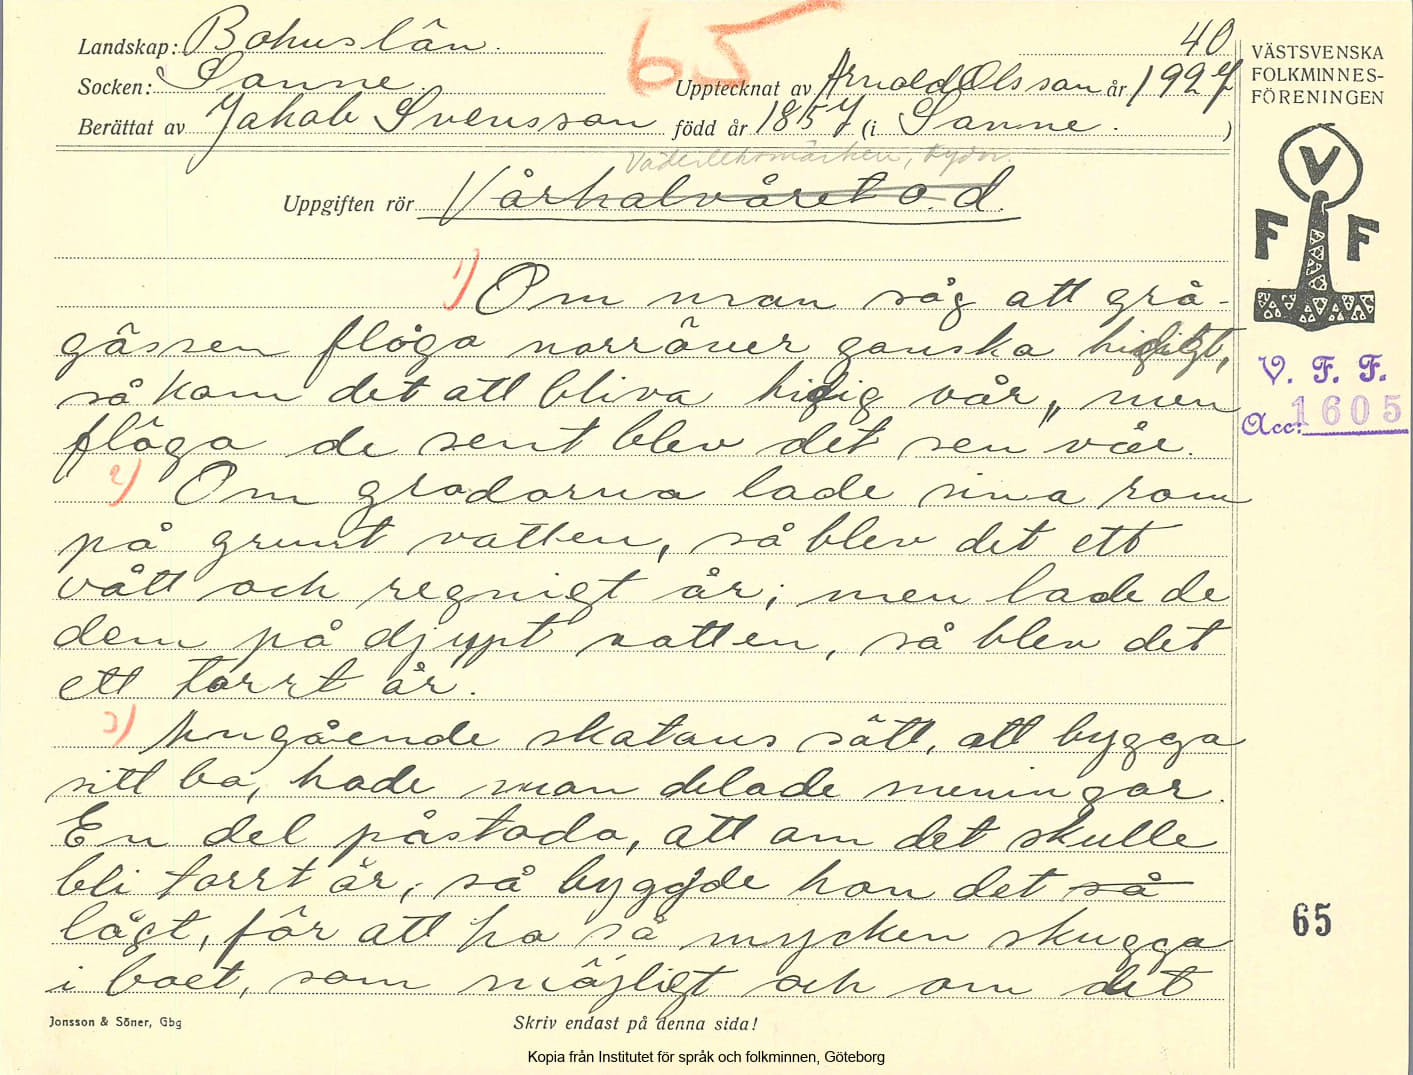 65
40
Landskap: Bohuslän.
Socken: Sanne
Upptecknat av Arnold Olsson år 1927
Berättat av Jakob Svensson född år 1857 (i Sanne. )
Väderleksmärken,
Uppgiften rör Vårhalvåret o. d.
VÄSTSVENSKA
FOLKMINNES-
FÖRENINGEN
V
F F
V. F. F.
Acc: 1605
1) Om man såg att grå-
gässen flöga norröver ganska hidigt,
så kom det att bliva hidig vår, men
flöga de sent blev det sen vår.
2) Om grodorna lade sina rom
på grunt vatten, så blev det ett
vått och regnigt år; men lade de
dem på djupt vatten, så blev det
ett torrt år.
3) Angående skatans sätt, att bygga
sitt bo, hade man delade meningar.
En del påstodo, att om det skulle
bli torrt år, så byggde hon det så
lågt, för att ha så mycken skugga
i boet, som möjligt och om det
65
Jonsson & Söner, Gbg
Skriv endast på denna sida!
Kopia från Institutet för språk och folkminnen, Göteborg